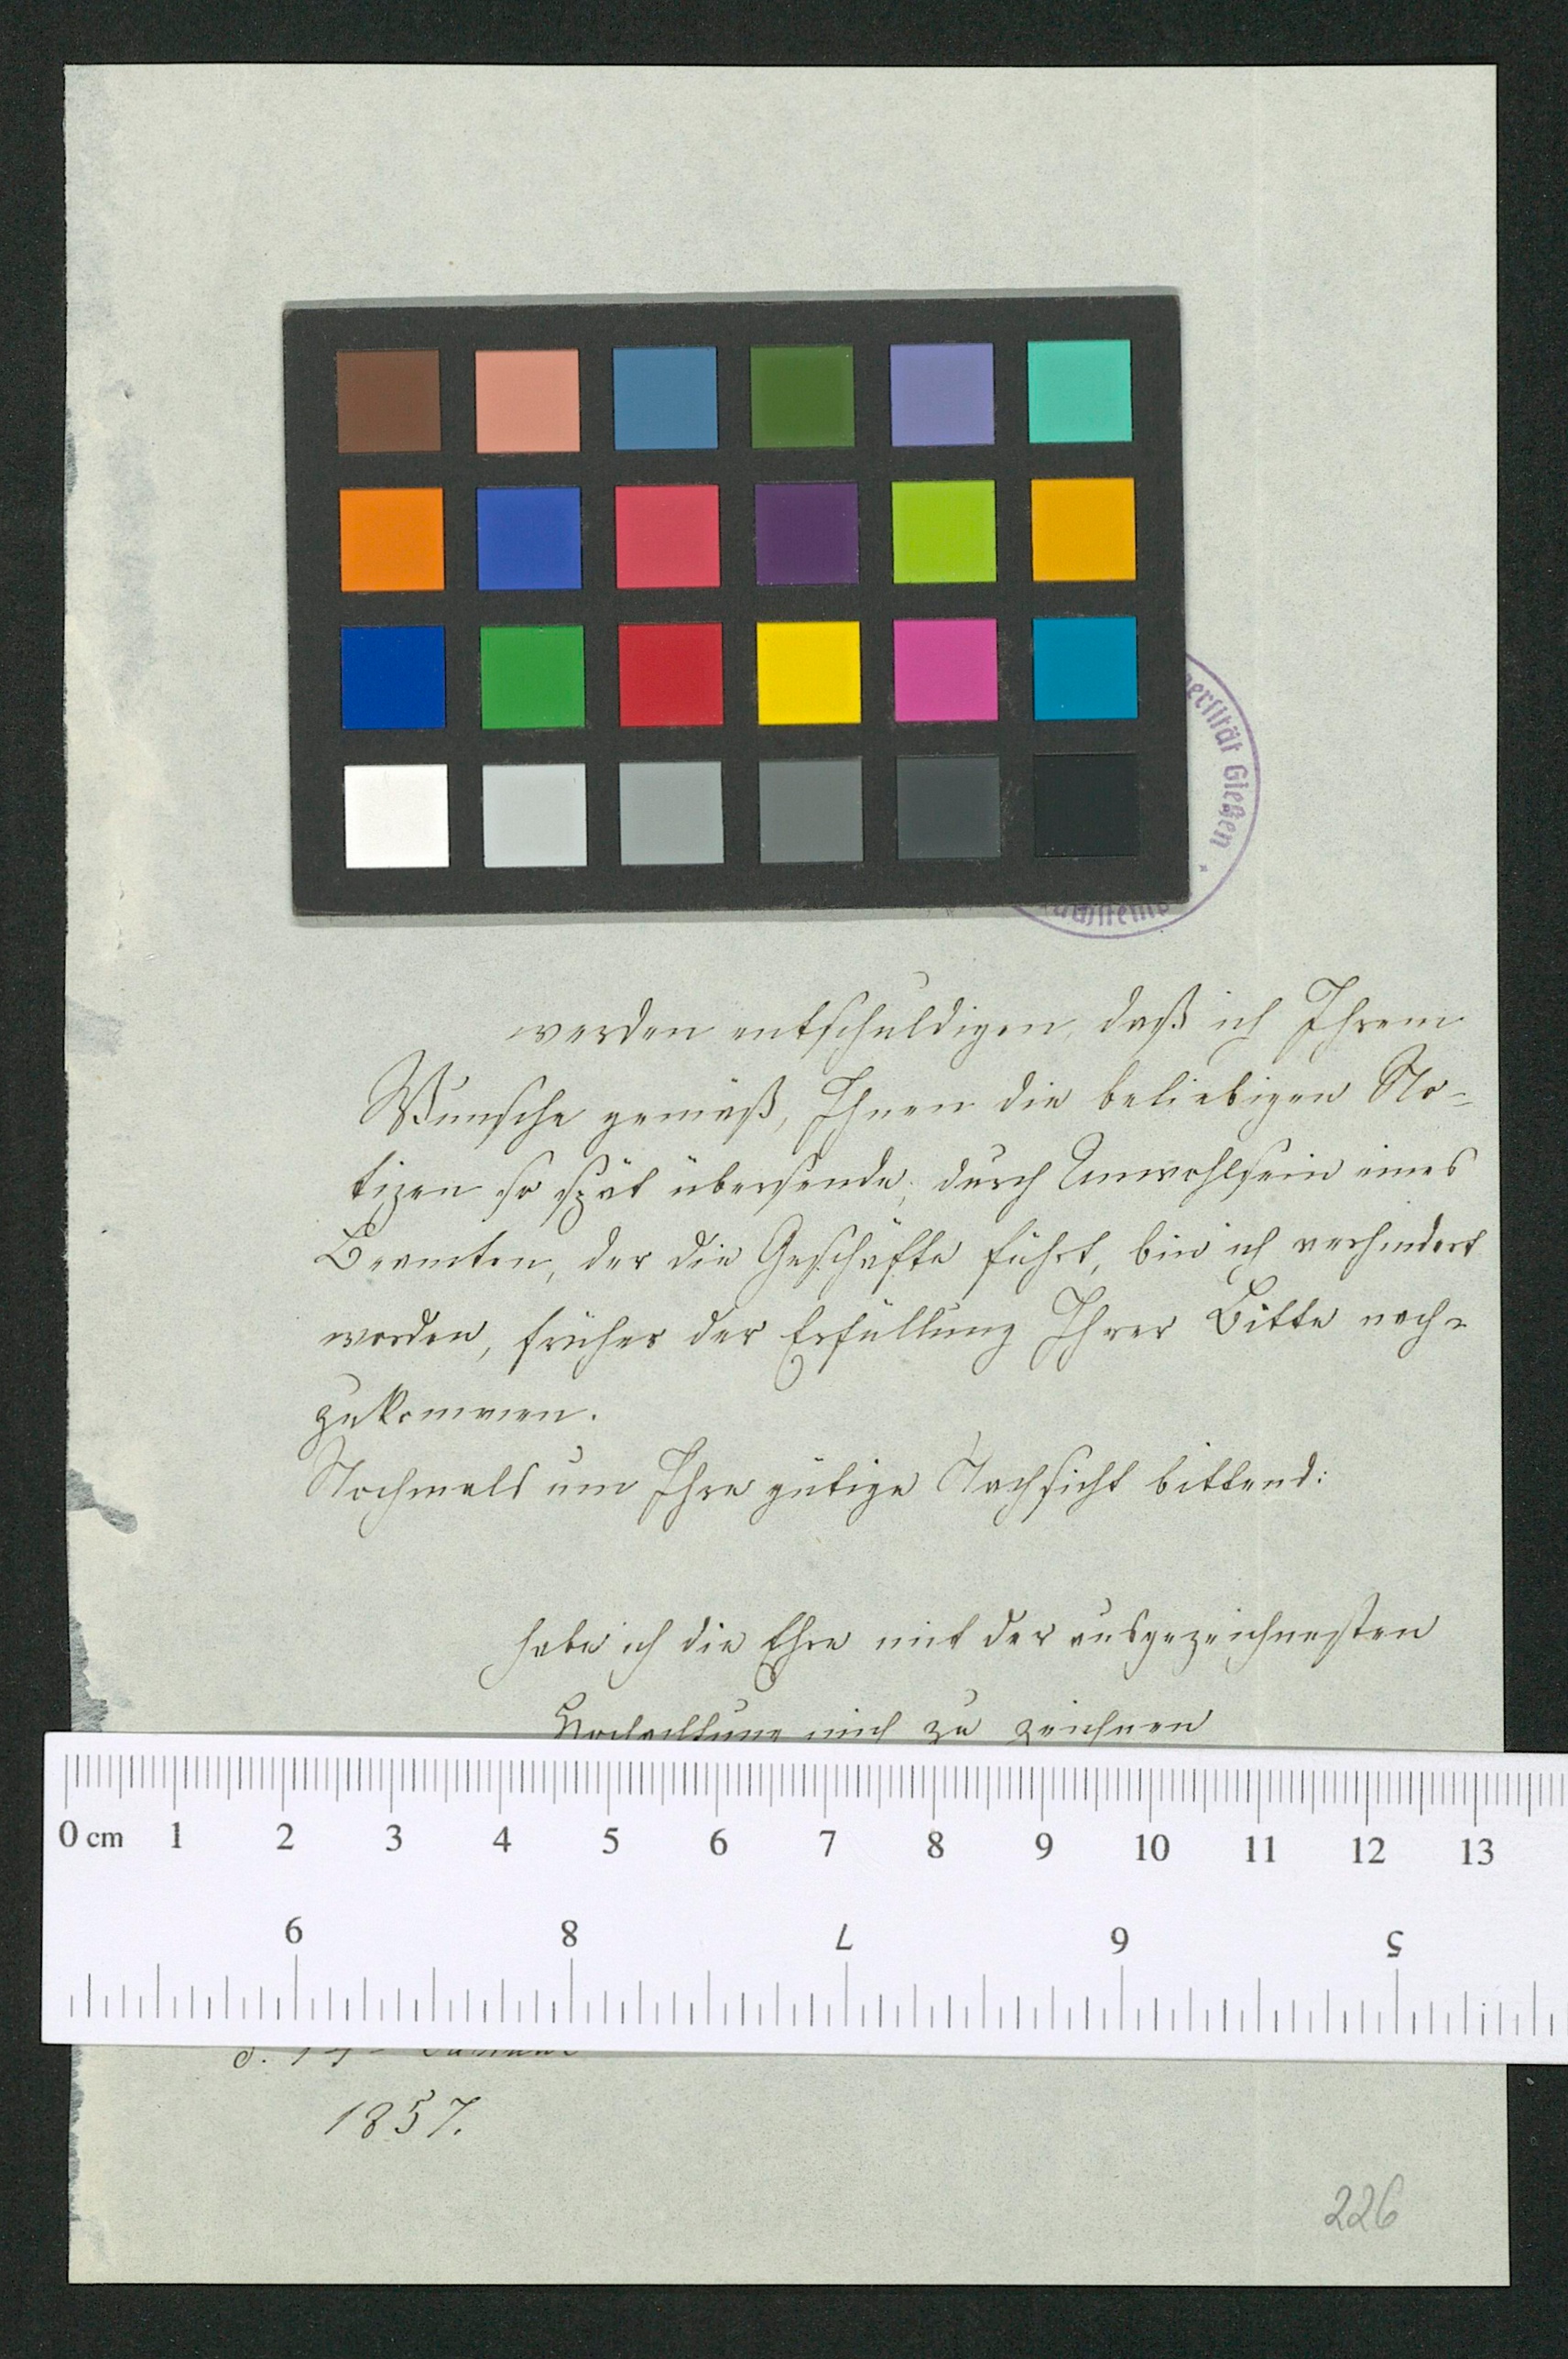 ersität Gießen
werden entschuldigen, daß ich Ihrem
Wunsche gemäß, Ihnen die beliebigen No-
tizen so spät übersende; durch Unwohlsein eines
Beamten, der die Geschäfte führt, bin ich verhindert
worden, früher der Erfüllung Ihrer Bitte nach-
zukommen.
Nochmals um Ihre gütige Nachsicht bittend:
habe ich die Ehre mit der ausgezeichnesten
Hochachtung mich zu zeichnen
0 cm 1 2 3 4 5 6 7 8 9 10 11 12 13
9 8 7 6 5
1857.
226